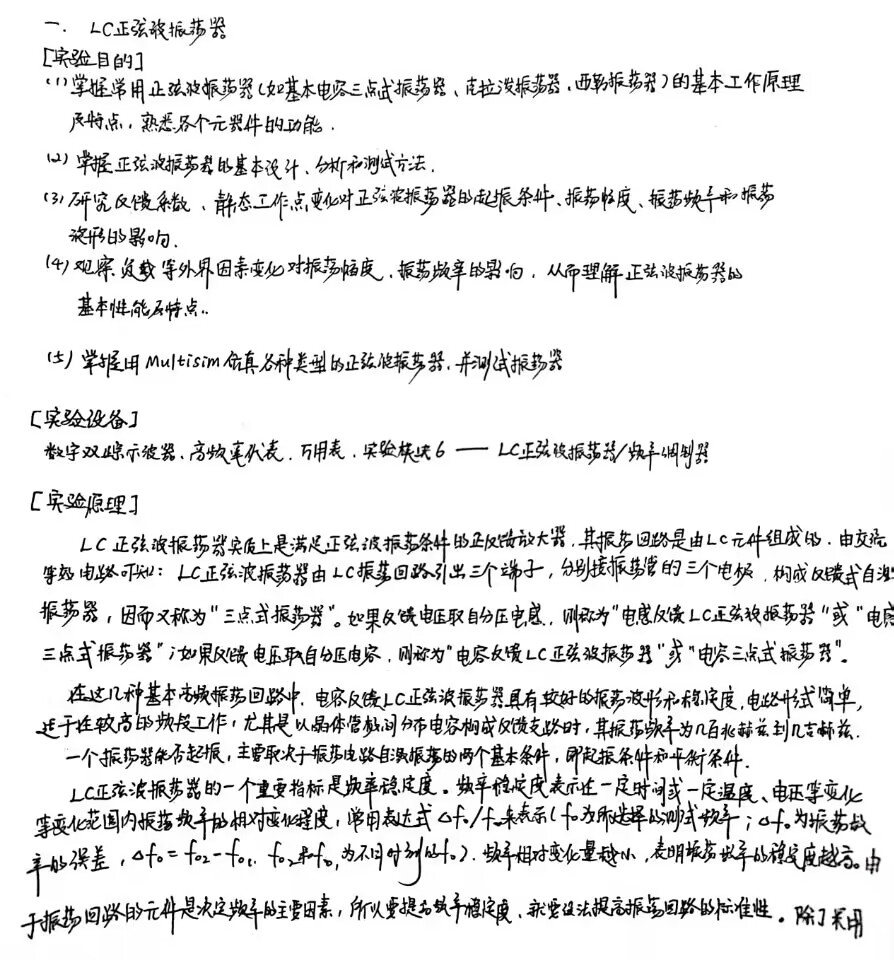 一. LC正弦波振荡器
[实验目的]
(1)掌握常用正弦波振荡器(如基本电容三点式振荡器、克拉泼振荡器、西勒振荡器)的基本工作原理
及特点,熟悉各个元器件的功能.
(2)掌握正弦波振荡器的基本设计、分析和测试方法.
(3)研究反馈系数、静态工作点变化对正弦波振荡器的起振条件、振荡幅度、振荡频率和振荡
波形的影响.
(4)观察负载等外界因素变化对振荡幅度、振荡频率的影响,从而理解正弦波振荡器的
基本性能及特点..
(5)掌握用Multisim仿真各种类型的正弦波振荡器,并测试振荡器
[实验设备]
数字双踪示波器、高频毫伏表、万用表、实验模块6 —— LC正弦波振荡器/频率调制器
[实验原理]
LC正弦波振荡器实质上是满足正弦波振荡条件的正反馈放大器,其振荡回路是由LC元件组成的.由交流
等效电路可知:LC正弦波振荡器由LC振荡回路引出三个端子,分别接振荡管的三个电极,构成反馈式自激
振荡器,因而又称为“三点式振荡器”。如果反馈电压取自分压电感,则称为“电感反馈LC正弦波振荡器”或“电感
三点式振荡器”;如果反馈电压取自分压电容,则称为“电容反馈LC正弦波振荡器”或“电容三点式振荡器”。
在这几种基本高频振荡回路中,电容反馈LC正弦波振荡器具有较好的振荡波形和稳定度,电路形式简单,
适于在较高的频段工作,尤其是以晶体管极间分布电容构成反馈支路时,其振荡频率为几百兆赫兹到几吉赫兹.
一个振荡器能否起振,主要取决于振荡电路自激振荡的两个基本条件,即起振条件和平衡条件.
LC正弦波振荡器的一个重要指标是频率稳定度。频率稳定度表示在一定时间或一定温度、电压等变化
等变化范围内振荡频率的相对变化程度,常用表达式Δf₀/f₀来表示(f₀为所选择的测试频率;Δf₀为振荡频
率的误差,Δf₀=f₀₂-f₀₁, f₀₂和f₀₁为不同时刻的f₀).频率相对变化量越小,表明振荡频率的稳定度越高。由
于振荡回路的元件是决定频率的主要因素,所以要提高频率稳定度、就要设法提高振荡回路的标准性。除了采用